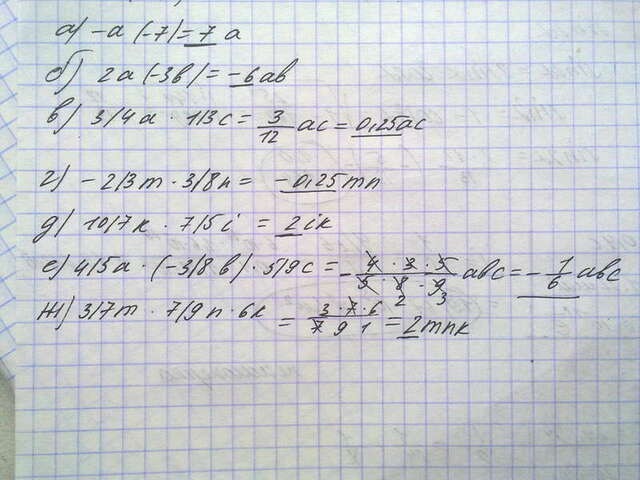 а) -a (-7) = 7 a
б) 2a(-3b) = -6ab
в) 3/4a · 1/3c = 3/12 ac = 0,25ac
г) -2/3m · 3/8n = -0,25mn
д) 10/7k · 7/5i = 2ik
е) 4/5a · (-3/8b) · 5/9c = - 4 · 3 · 5 / 5 · 8 · 9 abc = - 1/6 abc
2 3
ж) 3/7m · 7/9n · 6k = 3 · 7 · 6 / 7 9 1 = 2mnk